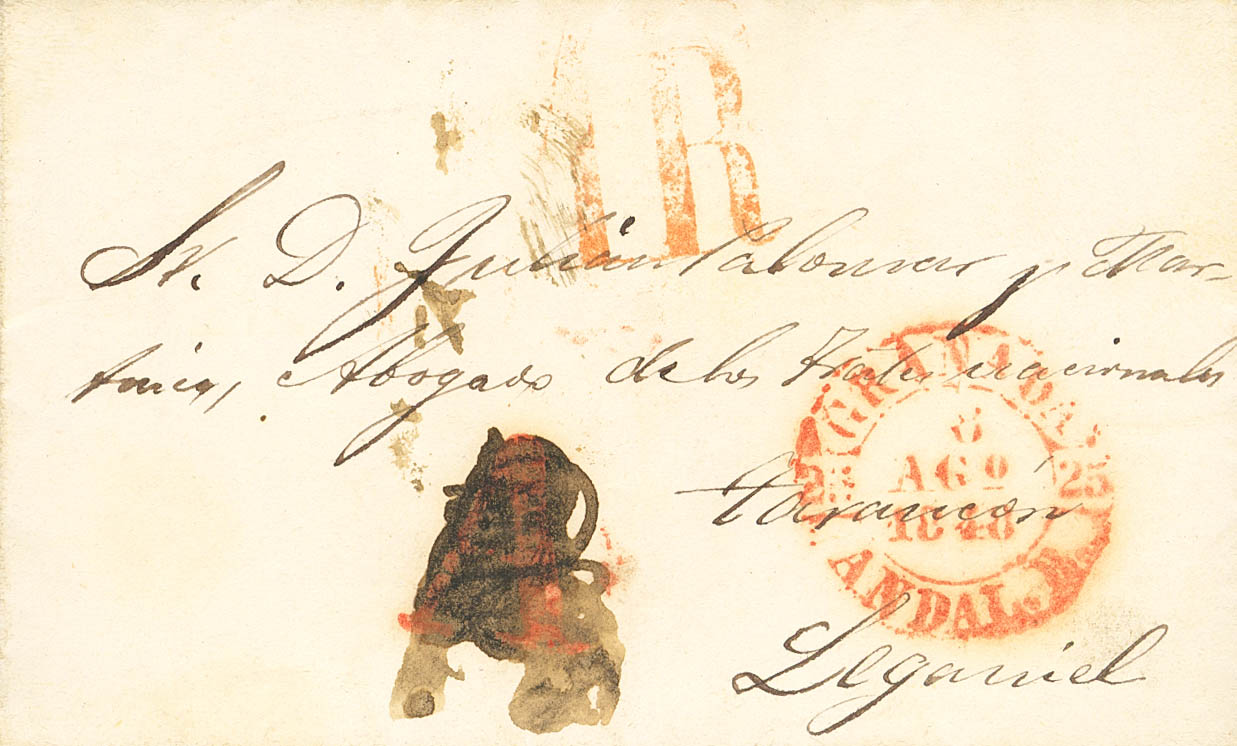 1R
Sr. D. Julian Palomar y Mar-
tinez, Abogado de los Trales nacionales
Tarancón
Leganiel
GRANADA.
25 25
8
AGº
1848
ANDAL. B.